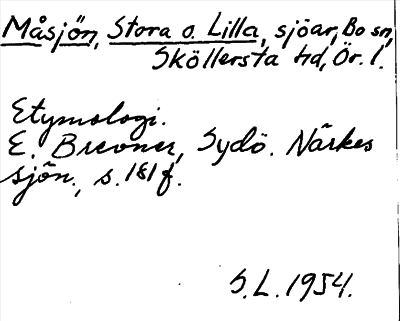 Måsjön, Stora o. Lilla, sjöar, Bo sn,
Sköllersta hd, Ör. l.
Etymologi.
E. Brevner, Sydö. Närkes
sjön., s. 181 f.
S.L. 1954.